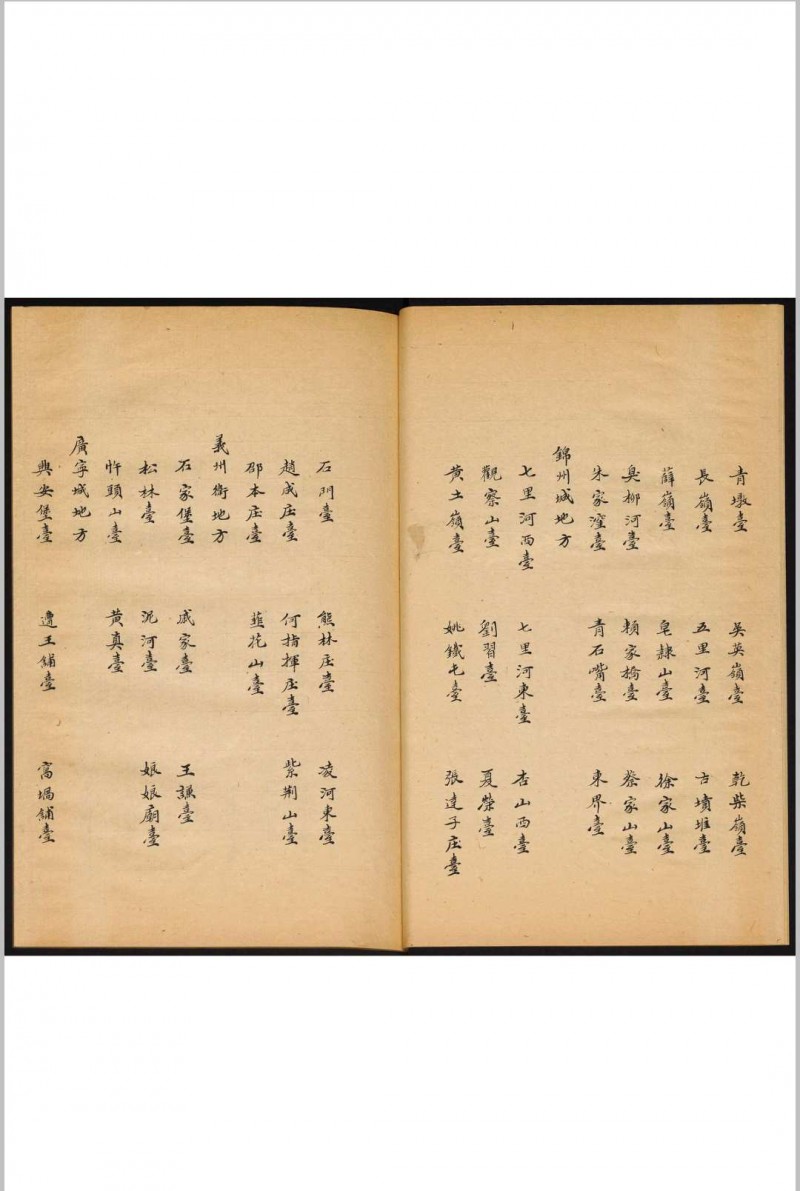 青墩臺 吳英嶺臺 乾柴嶺臺
長嶺臺 五里河臺 古墳堆臺
薛嶺臺 皂隸山臺 徐家山臺
臭柳河臺 頼家橋臺 蔡家山臺
朱家窪臺 青石嘴臺 東界臺
錦州城地方
七里河西臺 七里河東臺 杏山西臺
觀察山臺 劉習臺 夏榮臺
黃土嶺臺 姚鐵屯臺 張達子庄臺
石門臺 熊林庄臺 凌河東臺
趙成庄臺 何指揮庄臺 紫荆山臺
邵本庄臺 韮花山臺
義州衛地方
石家堡臺 戚家臺 王謙臺
松林臺 泥河臺 娘娘廟臺
忤頭山臺 黃真臺
廣寧城地方
興安堡臺 邊王鋪臺 窩堝鋪臺